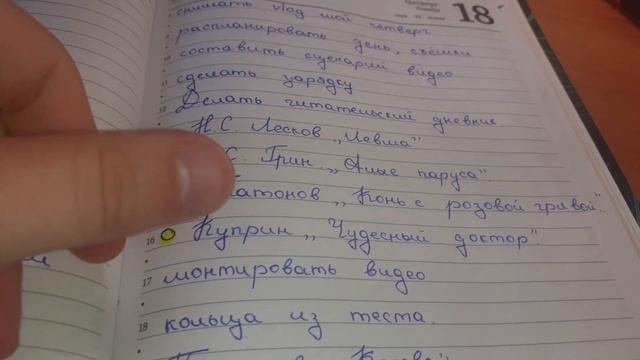 Четверг
18
снимать vlog мой четверг
распланировать день, съёмки
10 составить сценарий видео
11 сделать зарядку
12 Делать читательский дневник.
Н.С. Лесков „Левша"
С. Грин „Алые паруса".
атонов „Конь с розовой гривой".
16 Куприн „Чудесный доктор".
17 монтировать видео
18 кольца из теста.